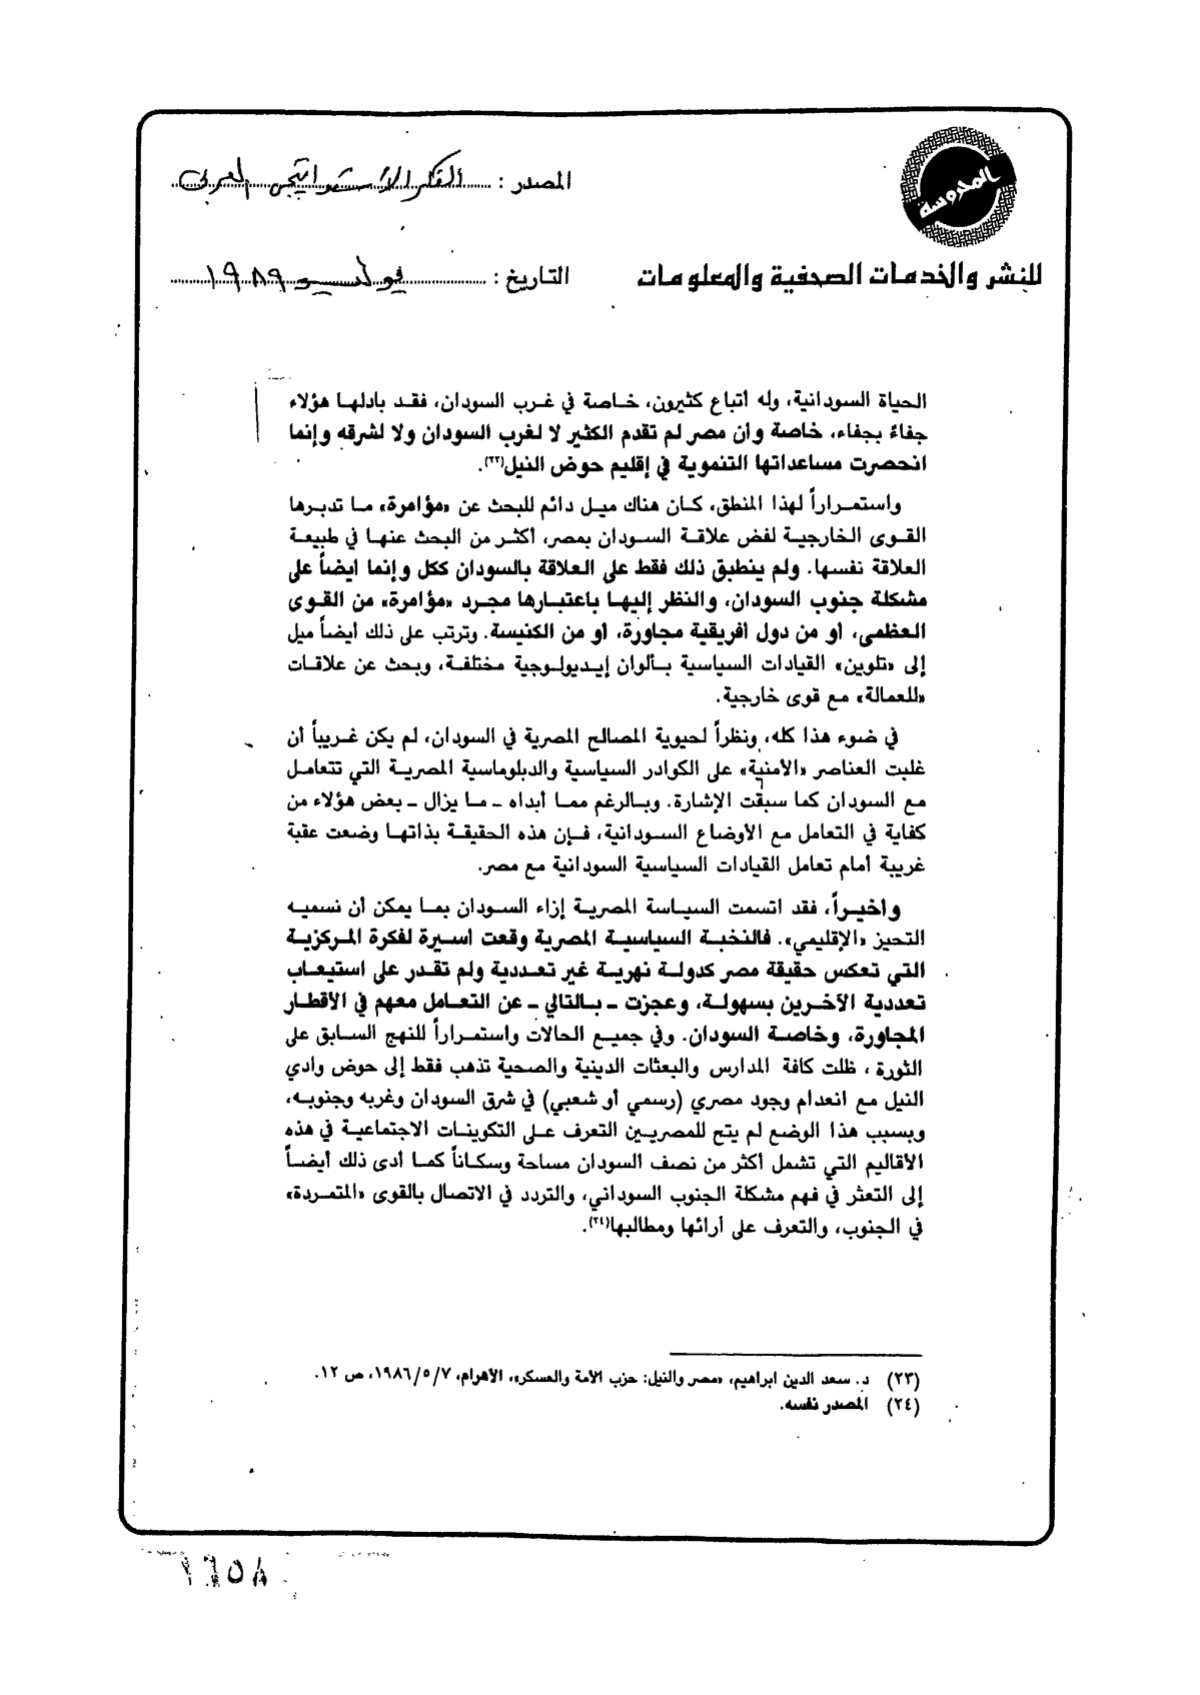 المحروسة
للنشر والخدمات الصحفية والمعلومات
المصدر : الفكر الاستراتيجى العربى
التاريخ : يوليو ١٩٨٩
الحياة السودانية، وله أتباع كثيرون، خاصة في غرب السودان، فقد بادلها هؤلاء
جفاءً بجفاء، خاصة وأن مصر لم تقدم الكثير لا لغرب السودان ولا لشرقه وإنما
انحصرت مساعداتها التنموية في إقليم حوض النيل(٢٣).
واستمراراً لهذا المنطق، كان هناك ميل دائم للبحث عن «مؤامرة» ما تدبرها
القوى الخارجية لفض علاقة السودان بمصر، أكثر من البحث عنها في طبيعة
العلاقة نفسها. ولم ينطبق ذلك فقط على العلاقة بالسودان ككل وإنما أيضاً على
مشكلة جنوب السودان، والنظر إليها باعتبارها مجرد «مؤامرة» من القوى
العظمى، أو من دول أفريقية مجاورة، أو من الكنيسة. وترتب على ذلك أيضاً ميل
إلى «تلوين» القيادات السياسية بألوان إيديولوجية مختلفة، وبحث عن علاقات
«للعمالة» مع قوى خارجية.
في ضوء هذا كله، ونظراً لحيوية المصالح المصرية في السودان، لم يكن غريباً أن
غلبت العناصر «الأمنية» على الكوادر السياسية والدبلوماسية المصرية التي تتعامل
مع السودان كما سبقت الإشارة. وبالرغم مما أبداه - ما يزال - بعض هؤلاء من
كفاية في التعامل مع الأوضاع السودانية، فإن هذه الحقيقة بذاتها وضعت عقبة
غريبة أمام تعامل القيادات السياسية السودانية مع مصر.
وأخيراً، فقد اتسمت السياسة المصرية إزاء السودان بما يمكن أن نسميه
التحيز «الإقليمي». فالنخبة السياسية المصرية وقعت أسيرة لفكرة المركزية
التي تعكس حقيقة مصر كدولة نهرية غير تعددية ولم تقدر على استيعاب
تعددية الآخرين بسهولة، وعجزت - بالتالي - عن التعامل معهم في الأقطار
المجاورة، وخاصة السودان. وفي جميع الحالات واستمراراً للنهج السابق على
الثورة ، ظلت كافة المدارس والبعثات الدينية والصحية تذهب فقط إلى حوض وادي
النيل مع انعدام وجود مصري (رسمي أو شعبي) في شرق السودان وغربه وجنوبه،
وبسبب هذا الوضع لم يتح للمصريين التعرف على التكوينات الاجتماعية في هذه
الأقاليم التي تشمل أكثر من نصف السودان مساحة وسكاناً كما أدى ذلك أيضاً
إلى التعثر في فهم مشكلة الجنوب السوداني، والتردد في الاتصال بالقوى «المتمردة»
في الجنوب، والتعرف على أرائها ومطالبها(٢٤).
(٢٣) د. سعد الدين ابراهيم، «مصر والنيل: حزب الأمة والعسكر»، الأهرام، ١٩٨٦/٥/٧، ص ١٢.
(٢٤) المصدر نفسه.